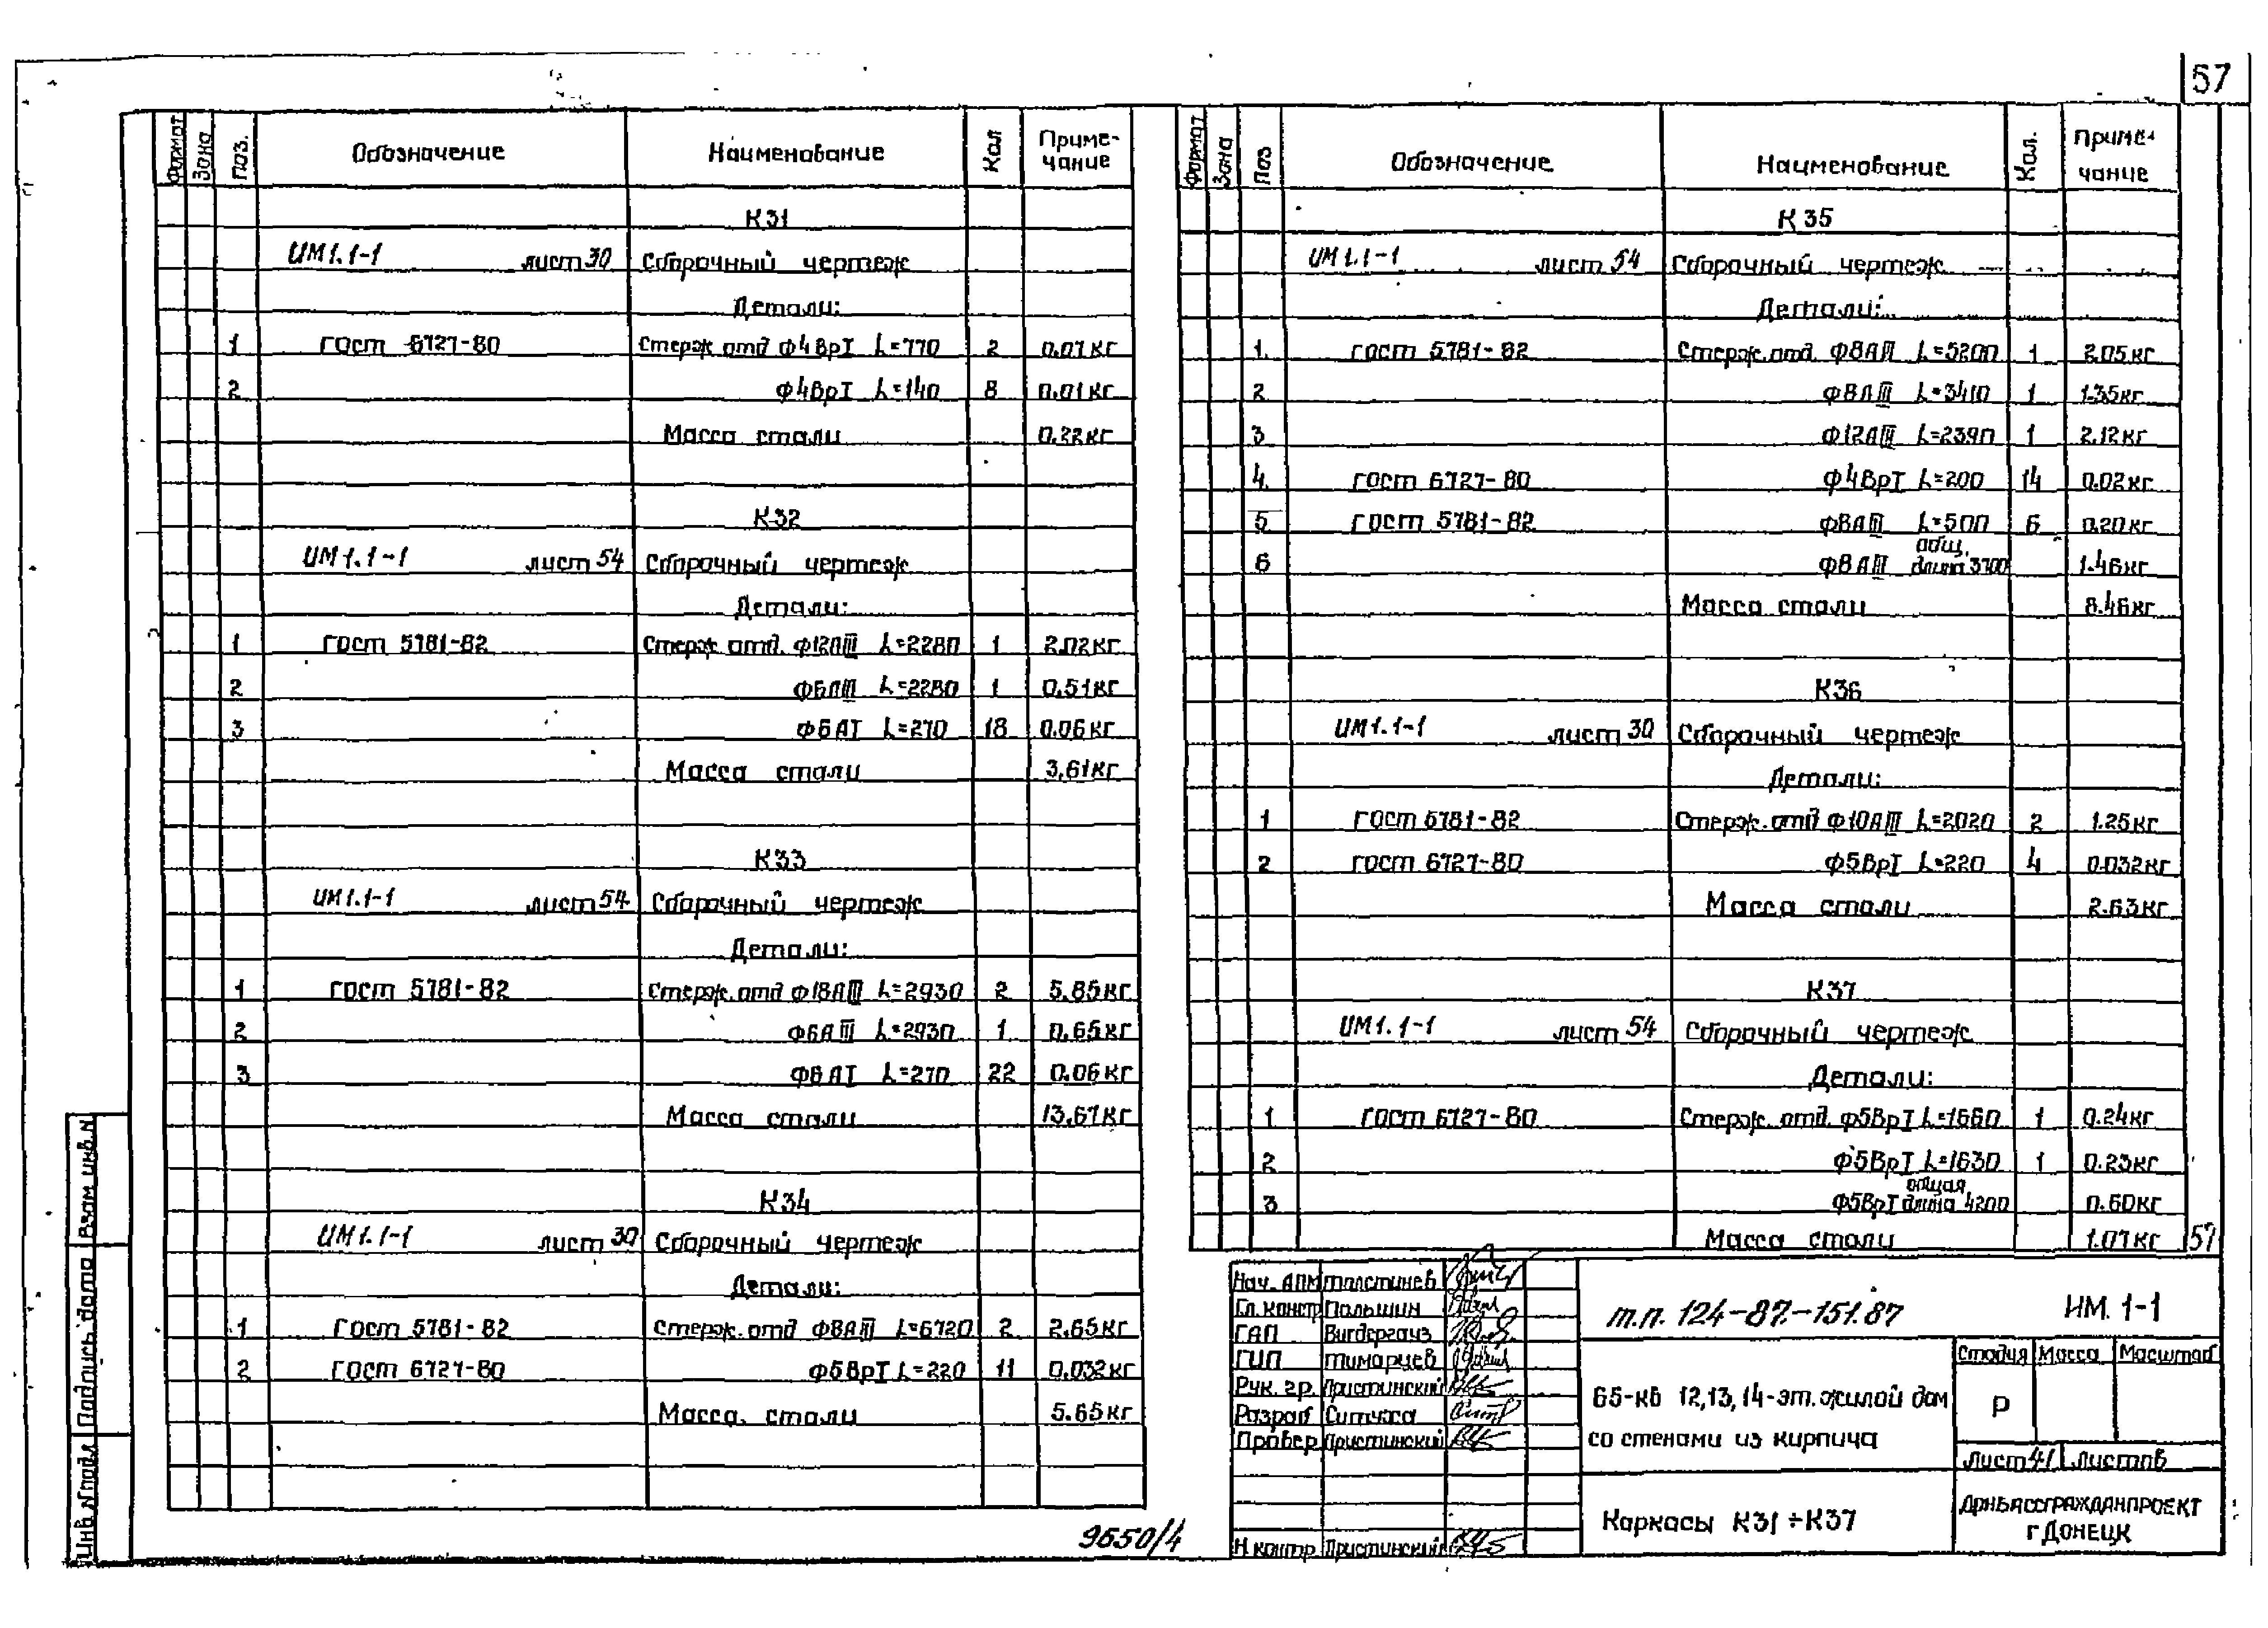 57
Формат Зона Поз. Обозначение Наименование Кол Приме-
чание
К31
ИМ1.1-1 лист 30 Сборочный чертеж
Детали:
1 ГОСТ 6727-80 Стерж. отд Ф4ВрI L=770 2 0.07кг
2 Ф4ВрI L=140 8 0.01кг
Масса стали 0.22кг
К32
ИМ1.1-1 лист 54 Сборочный чертеж
Детали:
1 ГОСТ 5781-82 Стерж. отд. Ф12АIII L=2280 1 2.02кг
2 Ф6АIII L=2280 1 0.51кг
3 Ф6АI L=270 18 0.06кг
Масса стали 3.61кг
К33
ИМ1.1-1 лист 54 Сборочный чертеж
Детали:
1 ГОСТ 5781-82 Стерж. отд Ф18АIII L=2930 2 5.85кг
2 Ф6АIII L=2930 1 0.65кг
3 Ф6АI L=270 22 0.06кг
Масса стали 13.67кг
К34
ИМ1.1-1 лист 30 Сборочный чертеж
Детали:
1 ГОСТ 5781-82 Стерж. отд Ф8АIII L=6720 2 2.65кг
2 ГОСТ 6727-80 Ф5ВрI L=220 11 0.032кг
Масса стали 5.65кг
Формат Зона Поз Обозначение Наименование Кол. Приме-
чание
К35
ИМ1.1-1 лист 54 Сборочный чертеж
Детали:
1. ГОСТ 5781-82 Стерж. отд. Ф8АIII L=5200 1 2.05кг
2 Ф8АIII L=3410 1 1.35кг
3 Ф12АIII L=2390 1 2.12кг
4. ГОСТ 6727-80 Ф4ВрI L=200 14 0.02кг
5 ГОСТ 5781-82 Ф8АIII L=500 6 0.20кг
6 Ф8АIII общ. длина 3700 1.46кг
Масса стали 8.46кг
К36
ИМ1.1-1 лист 30 Сборочный чертеж
Детали:
1 ГОСТ 5781-82 Стерж. отд Ф10АIII L=2020 2 1.25кг
2 ГОСТ 6727-80 Ф5ВрI L=220 4 0.032кг
Масса стали 2.63кг
К37
ИМ1.1-1 лист 54 Сборочный чертеж
Детали:
1 ГОСТ 6727-80 Стерж. отд. Ф5ВрI L=1660 1 0.24кг
2 Ф5ВрI L=1630 1 0.23кг
3 Ф5ВрI общая длина 4200 0.60кг
Масса стали 1.07кг
57
Нач. АПМ Толстинев
Гл. констр Пальшин
ГАП Вигдергауз
ГИП Тимарцев
Рук. гр. Пристинский
Разраб Ситчяса
Провер Пристинский
Н контр Пристинский
т.п. 124-87-151.87 ИМ. 1-1
65-кв 12,13,14-эт. жилой дом
со стенами из кирпича
Стадия Масса Масштаб
Р
Лист 41 Листов
Каркасы К31÷К37
ДОНБАССГРАЖДАНПРОЕКТ
г.ДОНЕЦК
9650/4
Инв.N подл Подпись дата Взам инв.N